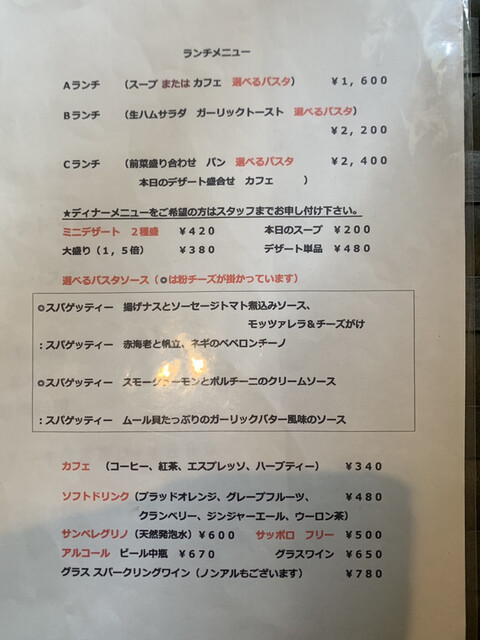 ランチメニュー
Aランチ (スープ または カフェ 選べるパスタ) ￥1,600
Bランチ (生ハムサラダ ガーリックトースト 選べるパスタ)
￥2,200
Cランチ (前菜盛り合わせ パン 選べるパスタ ￥2,400
本日のデザート盛合せ カフェ )
★ディナーメニューをご希望の方はスタッフまでお申し付け下さい。
ミニデザート 2種盛 ￥420 本日のスープ ￥200
大盛り(1,5倍) ￥380 デザート単品 ￥480
選べるパスタソース(◎は粉チーズが掛かっています)
◎スパゲッティー 揚げナスとソーセージトマト煮込みソース、
モッツァレラ＆チーズがけ
：スパゲッティー 赤海老と帆立、ネギのペペロンチーノ
◎スパゲッティー スモークサーモンとポルチーニのクリームソース
：スパゲッティー ムール貝たっぷりのガーリックバター風味のソース
カフェ (コーヒー、紅茶、エスプレッソ、ハーブティー) ￥340
ソフトドリンク(ブラッドオレンジ、グレープフルーツ、 ￥480
クランベリー、ジンジャーエール、ウーロン茶)
サンペレグリノ(天然発泡水)￥600 サッポロ フリー ￥500
アルコール ビール中瓶 ￥670 グラスワイン ￥650
グラス スパークリングワイン(ノンアルもございます) ￥780